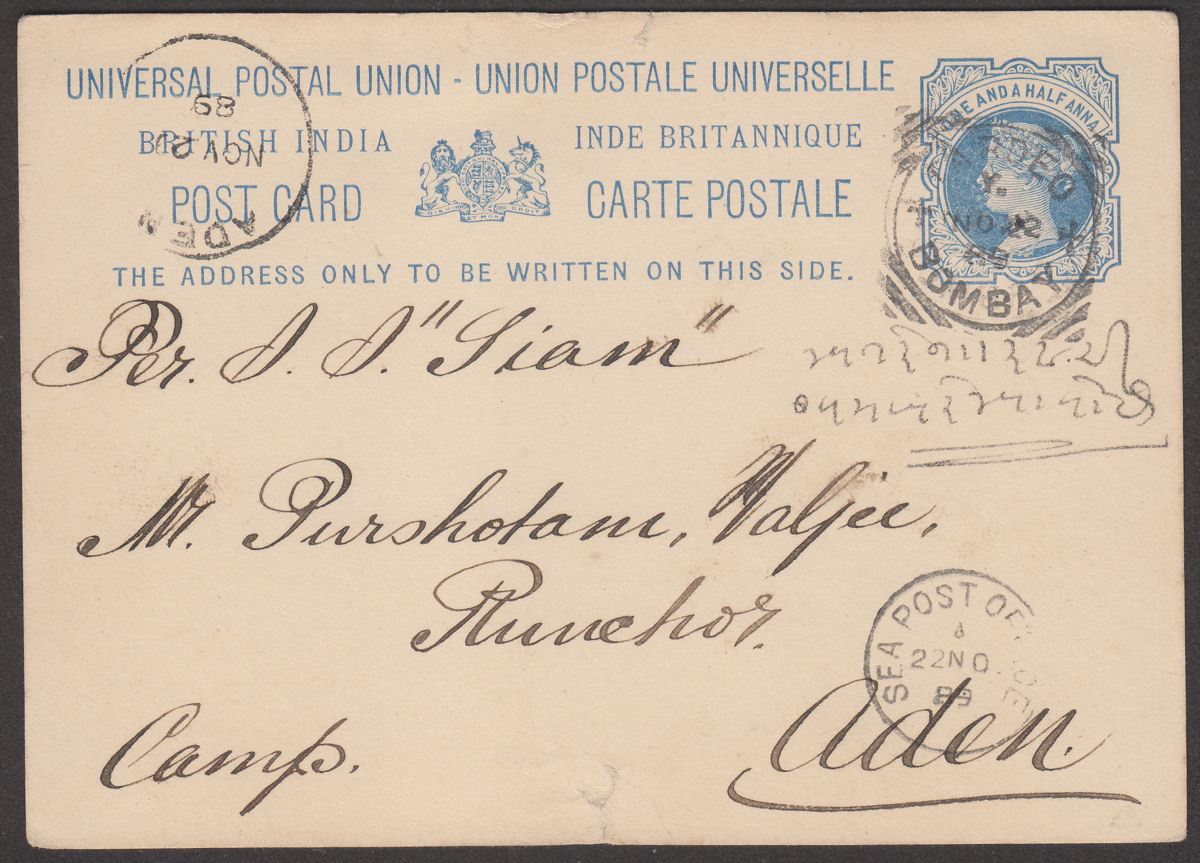 UNIVERSAL POSTAL UNION - UNION POSTALE UNIVERSELLE
BRITISH INDIA
INDE BRITANNIQUE
POST CARD
CARTE POSTALE
DIEU ET MON DROIT
THE ADDRESS ONLY TO BE WRITTEN ON THIS SIDE.
ONE AND A HALF ANNA
BOMBAY
ADEN
NOV
89
Per. S. S. "Siam"
Mr. Purshotam, Valjee,
Runchor.
SEA POST OFFICE
22 NO
89
Camp.
Aden.